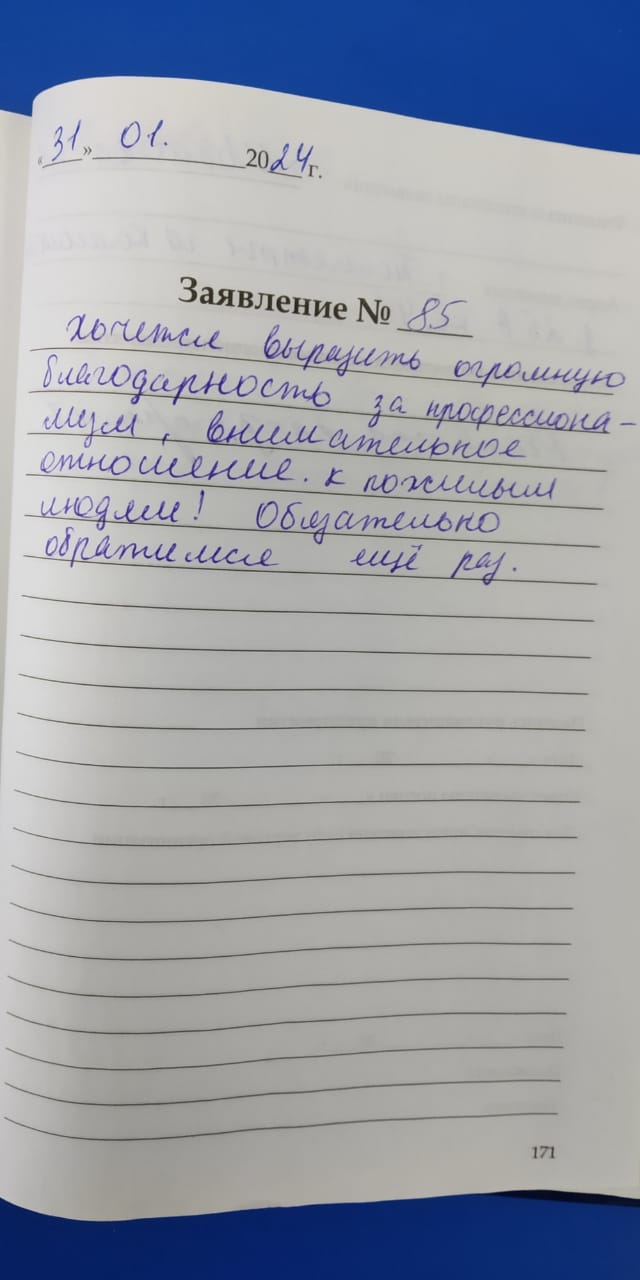 «31» 01. 2024 г.
Заявление № 85
Хочется выразить огромную
благодарность за профессиона-
лизм, внимательное
отношение. к пожилым
людям! Обязательно
обратимся ещё раз.
171